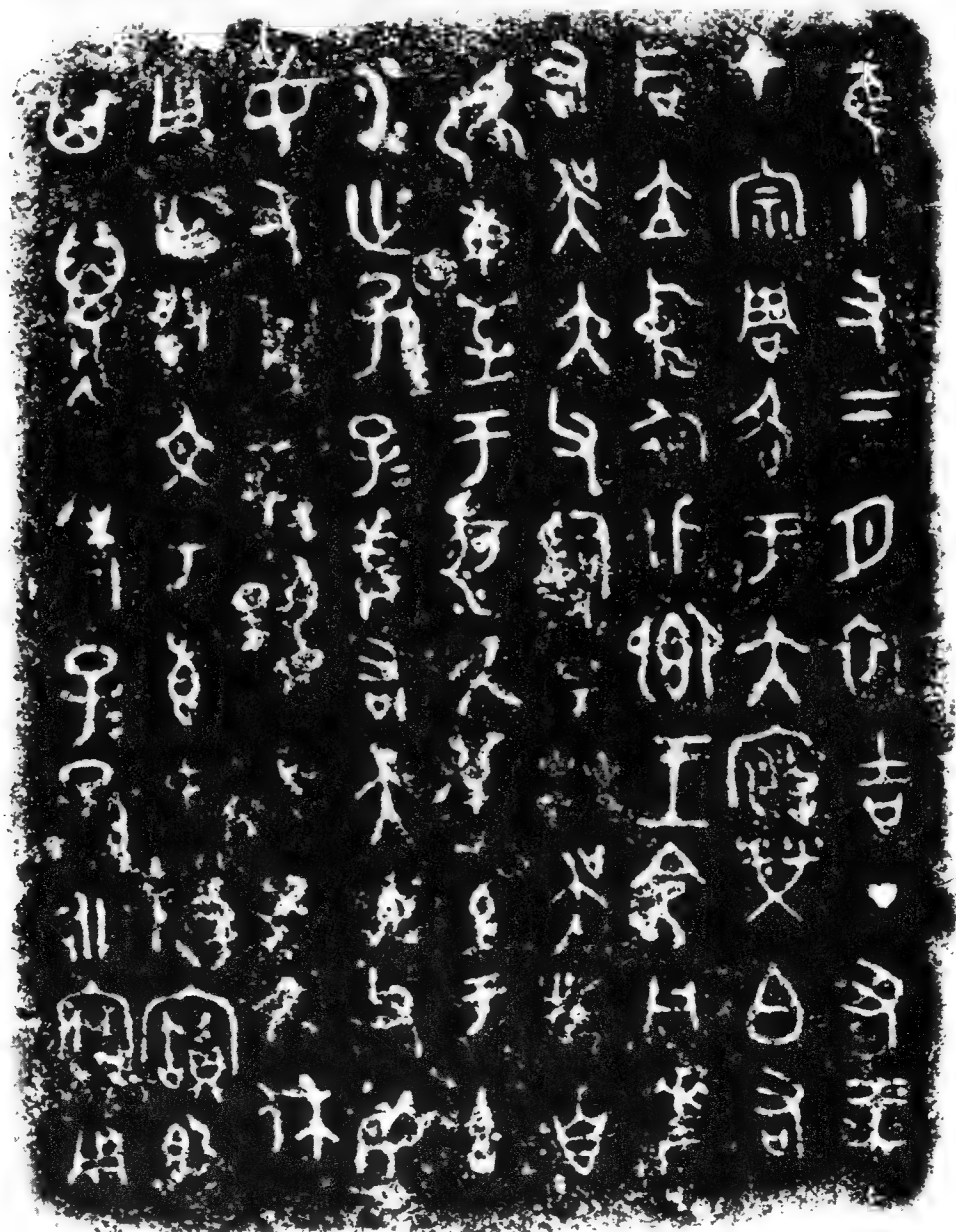 隹十又二月初吉丁丑王
才宗周各于大廟𤇾白右
同立中廷北卿王命同差
右吳大父𤔲昜林吳牧自
淲東至于河氒逆至于玄
水世孫孫子子差右吳大父毋
女又閑對揚天子氒休
用乍朕文丂叀中尊寶
𣪘其萬年子子孫孫永寶用